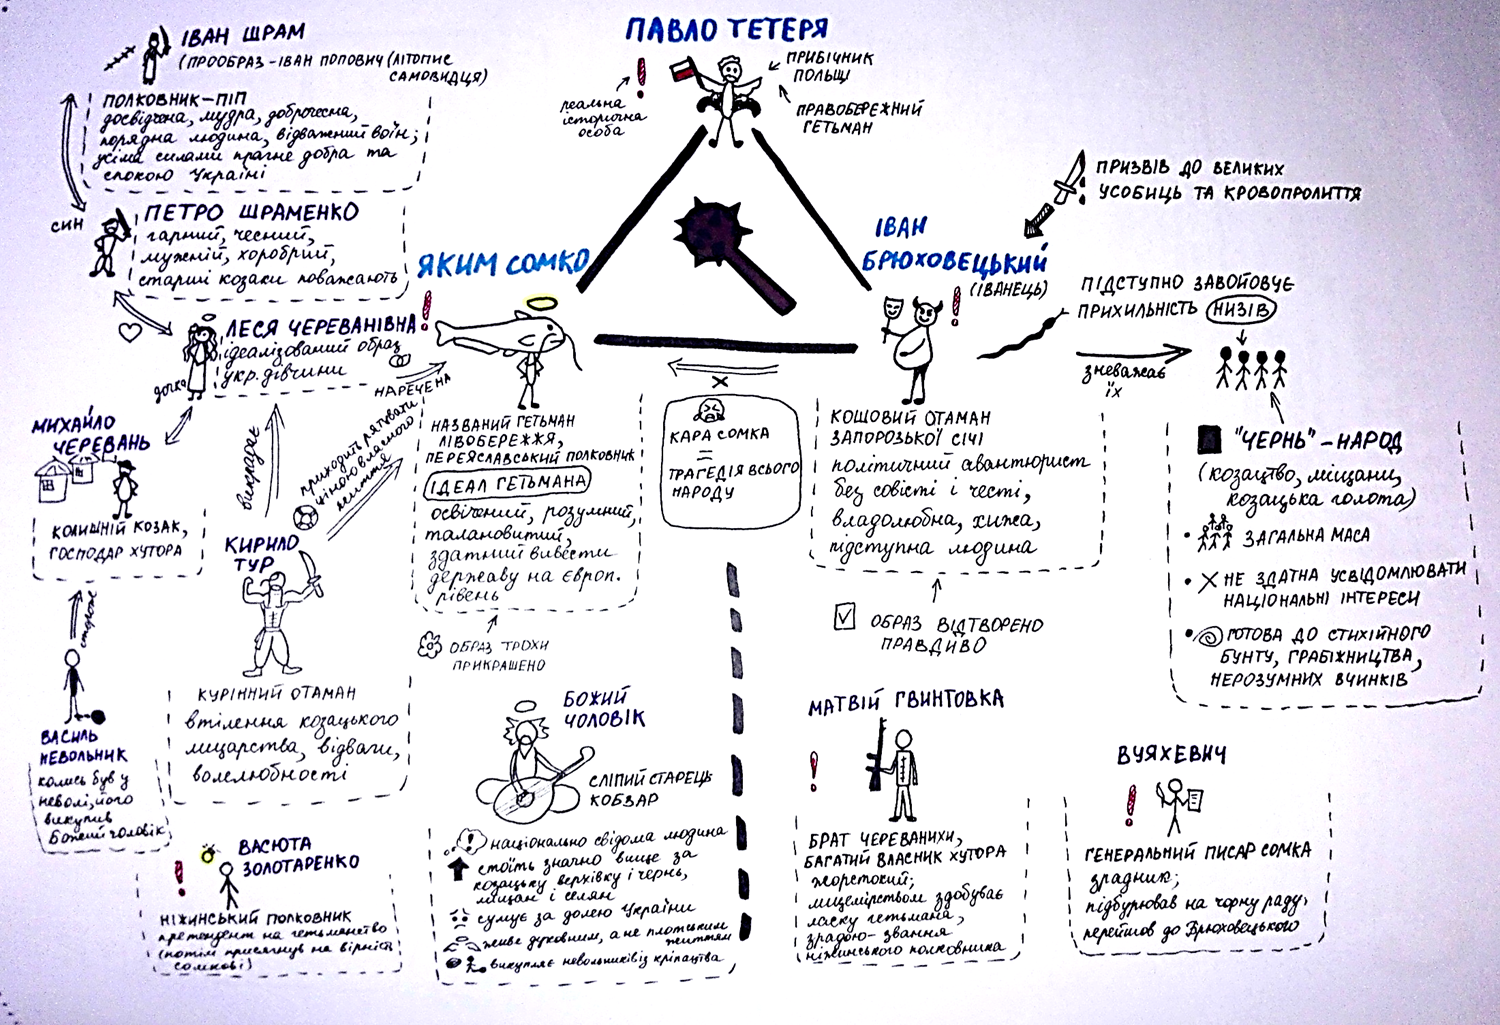 ПАВЛО ТЕТЕРЯ
реальна
історична
особа
ПРИБІЧНИК
ПОЛЬЩІ
ПРАВОБЕРЕЖНИЙ
ГЕТЬМАН
ІВАН ШРАМ
(ПРООБРАЗ-ІВАН ПОПОВИЧ (ЛІТОПИС
САМОВИДЦЯ)
ПОЛКОВНИК-ПІП
досвідчена, мудра, доброчесна,
порядна людина, відважний воїн;
усіма силами прагне добра та
спокою Україні
СИН
ПЕТРО ШРАМЕНКО
гарний, чесний,
мужній, хоробрий,
старші козаки поважають
ЛЕСЯ ЧЕРЕВАНІВНА
ідеалізований образ
укр. дівчини
дочка
НАРЕЧЕНА
МИХАЙЛО
ЧЕРЕВАНЬ
КОЛИШНІЙ КОЗАК,
ГОСПОДАР ХУТОРА
стороже
ВАСИЛЬ
НЕВОЛЬНИК
колись був у
неволі, його
викупив
Божий чоловік
викрадає
приходить рятувати
ціною власного
життя
КИРИЛО
ТУР
КУРІННИЙ ОТАМАН
втілення козацького
лицарства, відваги,
волелюбності
ВАСЮТА
ЗОЛОТАРЕНКО
НІЖИНСЬКИЙ ПОЛКОВНИК
претендент на гетьманство
(потім присягнув на вірність
Сомкові)
ЯКИМ СОМКО
НАЗВАНИЙ ГЕТЬМАН
ЛІВОБЕРЕЖЖЯ,
ПЕРЕЯСЛАВСЬКИЙ ПОЛКОВНИК
ІДЕАЛ ГЕТЬМАНА
освічений, розумний,
талановитий,
здатний вивести
державу на європ.
рівень
ОБРАЗ ТРОХИ
ПРИКРАШЕНО
БОЖИЙ
ЧОЛОВІК
СЛІПИЙ СТАРЕЦЬ
КОБЗАР
національно свідома людина
стоїть значно вище за
козацьку верхівку і чернь,
міщан і селян
сумує за долею України
живе духовним, а не плотським
життям
викупляє невольників із кріпацтва
КАРА СОМКА
=
ТРАГЕДІЯ ВСЬОГО
НАРОДУ
ІВАН
БРЮХОВЕЦЬКИЙ
(ІВАНЕЦЬ)
ПРИЗВІВ ДО ВЕЛИКИХ
УСОБИЦЬ ТА КРОВОПРОЛИТТЯ
ПІДСТУПНО ЗАВОЙОВУЄ
ПРИХИЛЬНІСТЬ НИЗІВ
зневажає
їх
КОШОВИЙ ОТАМАН
ЗАПОРОЗЬКОЇ СІЧІ
політичний авантюрист
без совісті і честі,
владолюбна, хижа,
підступна людина
ОБРАЗ ВІДТВОРЕНО
ПРАВДИВО
"ЧЕРНЬ"-НАРОД
(козацтво, міщани,
козацька голота)
ЗАГАЛЬНА МАСА
НЕ ЗДАТНА УСВІДОМЛЮВАТИ
НАЦІОНАЛЬНІ ІНТЕРЕСИ
ГОТОВА ДО СТИХІЙНОГО
БУНТУ, ГРАБІЖНИЦТВА,
НЕРОЗУМНИХ ВЧИНКІВ
МАТВІЙ ГВИНТОВКА
БРАТ ЧЕРЕВАНИХИ,
БАГАТИЙ ВЛАСНИК ХУТОРА
жорстокий;
лицемірством здобуває
ласку гетьмана,
зрадою- звання
ніжинського полковника
ВУЯХЕВИЧ
ГЕНЕРАЛЬНИЙ ПИСАР СОМКА
зрадник;
підбурював на чорну раду,
перейшов до Брюховецького